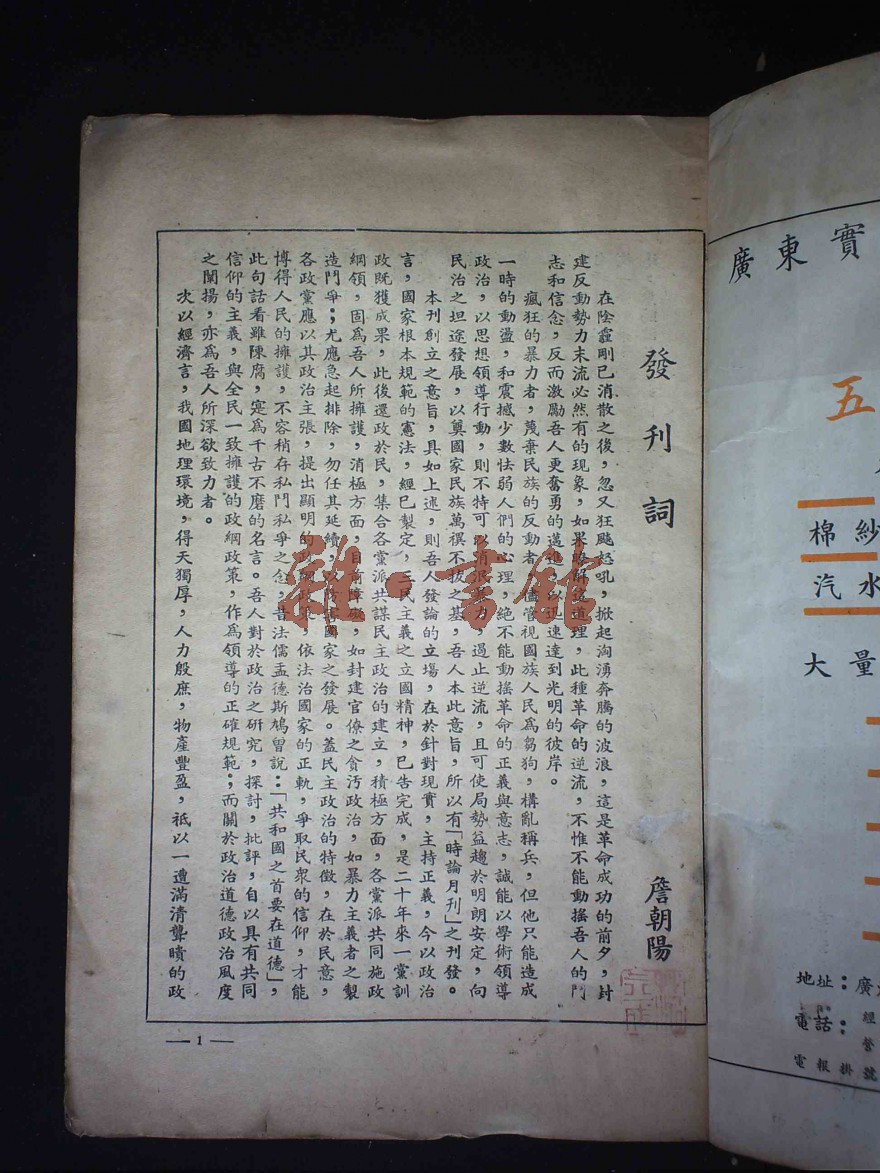 發刊詞
詹朝陽
在陰霾剛已消散之後，忽又狂飈怒吼，掀起洶湧奔騰的波浪，這是革命成功的前夕，封
建反動勢力末流必然有的現象，如果瞭解這道理，此種革命的逆流，不惟不能動搖吾人的鬥
志和信念，反而激勵吾人更奮勇的邁進，以迅速達到光明的彼岸。
瘋狂的暴力者，蔑棄民族的反動者，儘管視國族人民爲芻狗，構亂稱兵，但他只能造成
一時的動盪，和震撼少數怯弱人們的心理，絶不能動搖革命的正義與意志，誠能以學術領導
政治，以思想領導行動，則不特可以消泯暴力，遏止逆流，且可使局勢益趨於明朗安定，向
民治之坦途發展，以奠國家民族萬禩不拔之基，吾人本此意旨，所以有「時論月刊」之刊發。
本刊創立之意旨，具如上述，則吾人發論的立場，在於針對現實，主持正義，今以政治
言，國家根本規範的憲法，經已製定，三民主義之立國精神，已告完成，是二十年來一黨訓
政既獲成果，此後還政於民，集合各黨派共謀民主政治的建立，積極方面，各黨派共同施政
綱領，固爲吾人所擁護，消極方面，目前障礙，如封建官僚之貪污政治，如暴力主義者之製
造鬥爭；尤應急起排除，勿任其延續，以妨害國家之發展。蓋民主政治的特徵，在於民意，
各政黨應以其政治主張，提出顯明的政綱政策，依法治國家的正軌，爭取民衆的信仰，才能
博得人民的擁護，不容稍存私鬥私爭之念，昔法儒孟德斯鳩曾說：「共和國之首要在道德」，
此句話看雖陳腐，寔爲千古不磨的名言。吾人對於政治之研究，探討，批評，自以具有共同
信仰的主義，與全民一致擁護的政綱政策，作爲領導的正確規範；而關於政治道德政治風度
之闡揚，亦爲吾人所深欲致力者。
次以經濟言，我國地理環境，得天獨厚，人力殷庶，物產豐盈，祇以一遭滿清聾瞶的政
— 1 —
雜·書館
廣東實
五
棉紗
汽水
大量
地址：廣
電話：
經
營
電報掛號